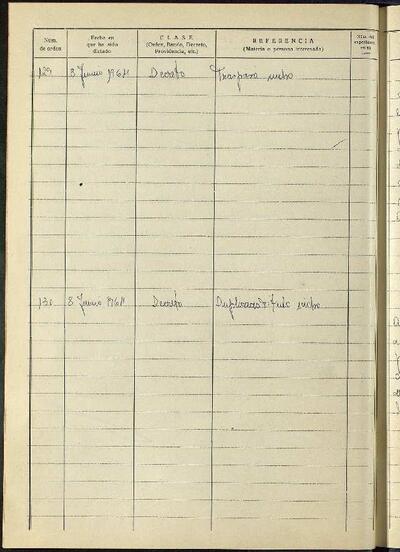 Núm. de orden
Fecha en que ha sido dictado
CLASE (Orden, Bando, Decreto, Providencia, etc.)
REFERENCIA (Materia o persona interesada)
129 8 Junio 1964 Decreto Traspaso nicho
130 8 Junio 1964 Decreto Duplicado nicho